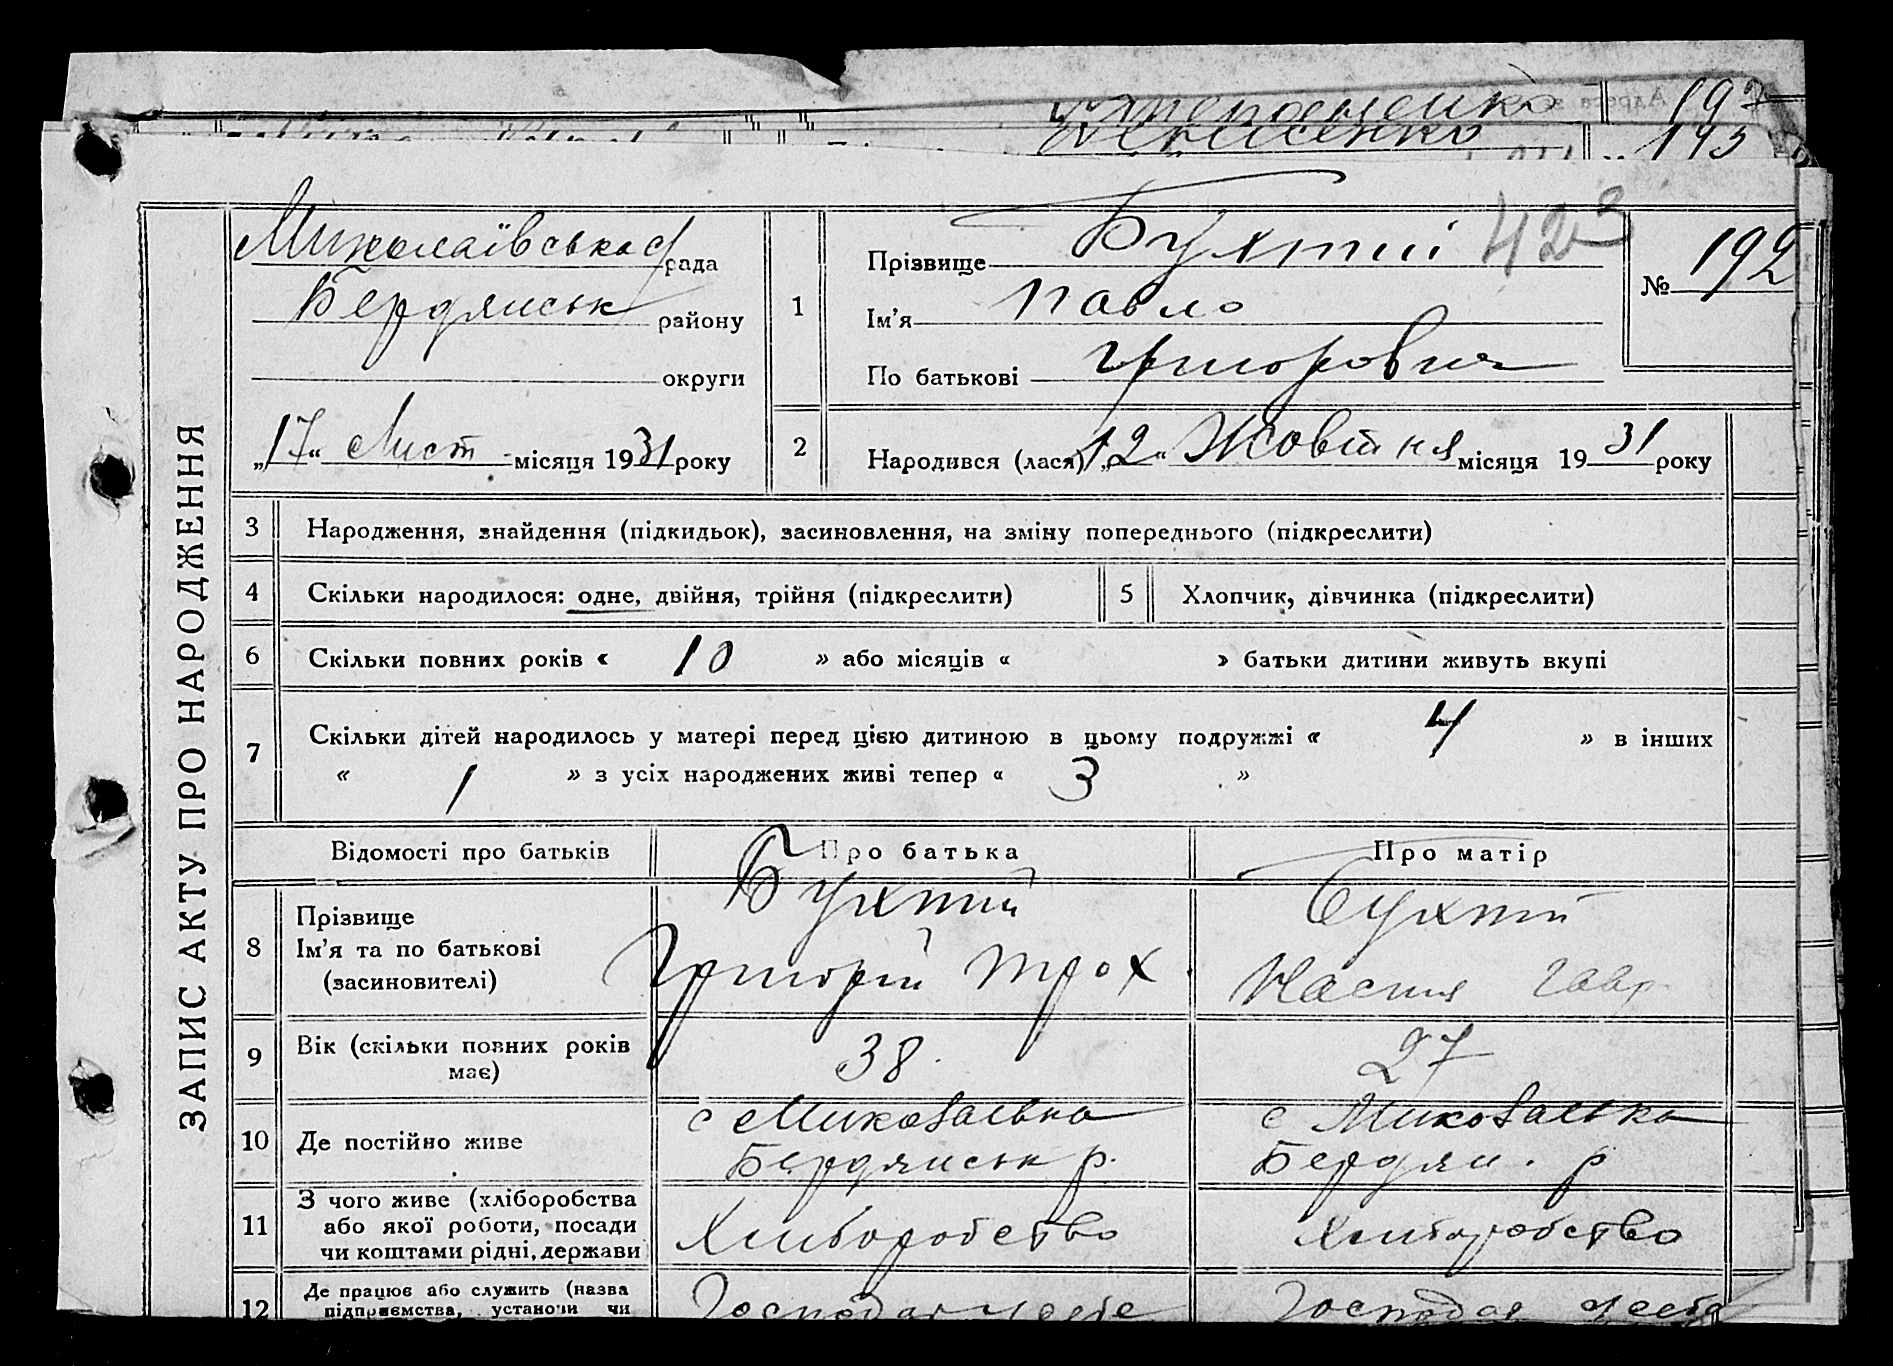 197
Денисенко 195
Миколаївська с/рада
Бердянськ району
округи
„17“ Лист місяця 1931 року
1
Прізвище Бухтий 423
Ім'я Павло
По батькові Григорович
№ 192
2
Народився (лася) „12“ Жовтня місяця 1931 року
ЗАПИС АКТУ ПРО НАРОДЖЕННЯ
3 Народження, знайдення (підкидьок), засиновлення, на зміну попереднього (підкреслити)
4 Скільки народилося: одне, двійня, трійня (підкреслити) 5 Хлопчик, дівчинка (підкреслити)
6 Скільки повних років « 10 » або місяців « » батьки дитини живуть вкупі
7 Скільки дітей народилось у матері перед цією дитиною в цьому подружжі « 4 » в інших
« 1 » з усіх народжених живі тепер « 3 »
Відомості про батьків Про батька Про матір
8 Прізвище Бухтий Бухтий
Ім'я та по батькові Григорій Трох. Настя Гавр.
(засиновителі)
9 Вік (скільки повних років має) 38. 27
10 Де постійно живе
с Миколаевка
Бердянськ р.
с Миколаевка
Бердян. р
11 З чого живе (хліборобства
або якої роботи, посади
чи коштами рідні, держави
Хлиборобство Хлиборобство
12 Де працює або служить (назва
підприємства, установи чи